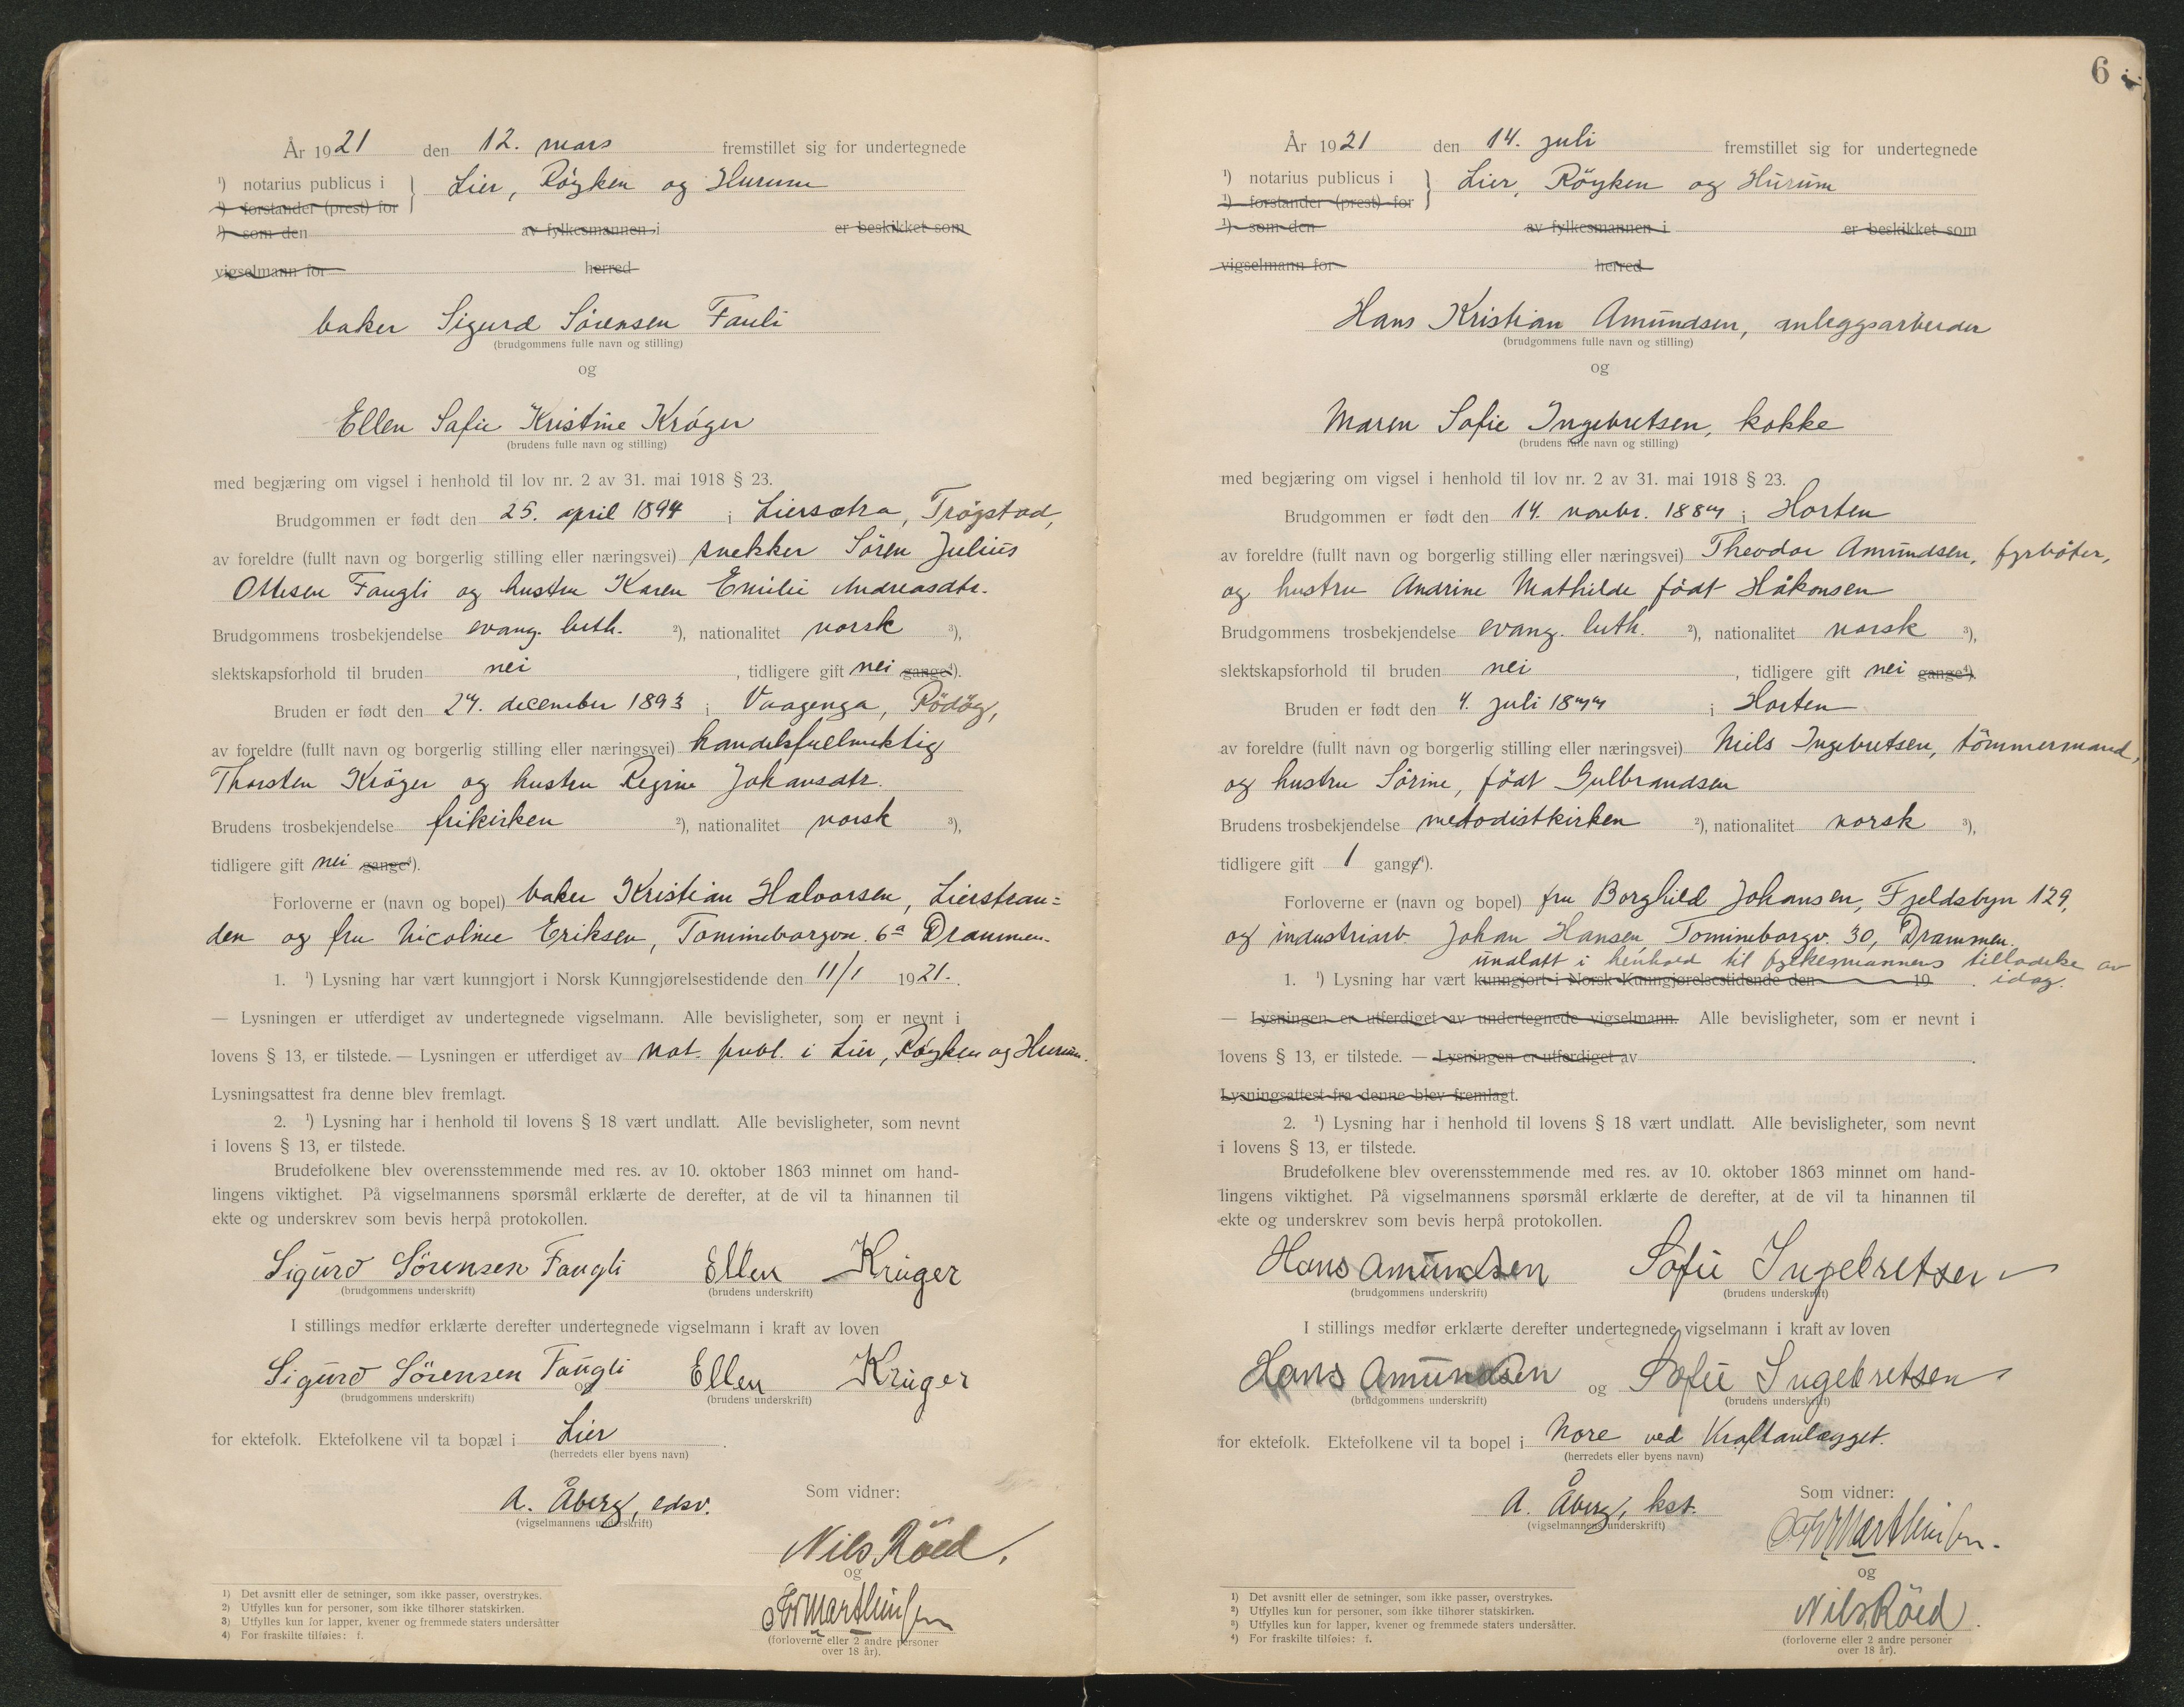 År 1921 den 12. mars fremstillet sig for undertegnede
¹) notarius publicus i } Lier, Röyken og Hurum
¹) forstander (prest) for
¹) som den av fylkesmannen i er beskikket som
vigselmann for herred
baker Sigurd Sörensen Fauli
(brudgommens fulle navn og stilling)
og
Ellen Sofie Kristine Kröger
(brudens fulle navn og stilling)
med begjæring om vigsel i henhold til lov nr. 2 av 31. mai 1918 § 23.
Brudgommen er født den 25. april 1894 i Liersætra, Trögstad,
av foreldre (fullt navn og borgerlig stilling eller næringsvei) snekker Sören Julius
Ottesen Faugli og hustru Karen Emilie Andreasdtr.
Brudgommens trosbekjendelse evang. luth. ²), nationalitet norsk ³),
slektskapsforhold til bruden nei, tidligere gift nei gange⁴).
Bruden er født den 24. december 1893 i Vaagenga, Rödöy,
av foreldre (fullt navn og borgerlig stilling eller næringsvei) handelsfullmektig
Thorsten Kröger og hustru Regine Johansdtr.
Brudens trosbekjendelse frikirken ²), nationalitet norsk ³),
tidligere gift nei gange⁴).
Forloverne er (navn og bopel) baker Kristian Halvorsen, Lierstran=
den og fru Nicoline Eriksen, Tomineborgvn. 6ª Drammen.
1. ¹) Lysning har vært kunngjort i Norsk Kunngjørelsestidende den 11/1 1921.
— Lysningen er utferdiget av undertegnede vigselmann. Alle bevisligheter, som er nevnt i
lovens § 13, er tilstede. — Lysningen er utferdiget av not. publ. i Lier, Röyken og Hurum.
Lysningsattest fra denne blev fremlagt.
2. ¹) Lysning har i henhold til lovens § 18 vært undlatt. Alle bevisligheter, som nevnt
i lovens § 13, er tilstede.
Brudefolkene blev overensstemmende med res. av 10. oktober 1863 minnet om hand-
lingens viktighet. På vigselmannens spørsmål erklærte de derefter, at de vil ta hinannen til
ekte og underskrev som bevis herpå protokollen.
Sigurd Sörensen Faugli Ellen Krüger
(brudgommens underskrift) (brudens underskrift)
I stillings medfør erklærte derefter undertegnede vigselmann i kraft av loven
Sigurd Sörensen Faugli og Ellen Krüger
(brudgommens underskrift) (brudens underskrift)
for ektefolk. Ektefolkene vil ta bopæl i Lier.
(herredets eller byens navn)
A. Åberg, edsv. Som vidner:
(vigselmannens underskrift)
Nils Röed.
og
Marthinsen
(forloverne eller 2 andre personer
over 18 år).
1) Det avsnitt eller de setninger, som ikke passer, overstrykes.
2) Utfylles kun for personer, som ikke tilhører statskirken.
3) Utfylles kun for lapper, kvener og fremmede staters undersåtter
4) For fraskilte tilføies: f.
6
År 1921 den 14. juli fremstillet sig for undertegnede
¹) notarius publicus i } Lier, Röyken og Hurum
¹) forstander (prest) for
¹) som den av fylkesmannen i er beskikket som
vigselmann for herred
Hans Kristian Amundsen, anleggsarbeider
(brudgommens fulle navn og stilling)
og
Maren Sofie Ingebretsen, kokke
(brudens fulle navn og stilling)
med begjæring om vigsel i henhold til lov nr. 2 av 31. mai 1918 § 23.
Brudgommen er født den 14. novbr. 1887 i Horten
av foreldre (fullt navn og borgerlig stilling eller næringsvei) Theodor Amundsen, fyrböter,
og hustru Andrine Mathilde födt Håkonsen
Brudgommens trosbekjendelse evang. luth. ²), nationalitet norsk ³),
slektskapsforhold til bruden nei, tidligere gift nei gange⁴).
Bruden er født den 4. juli 1877 i Horten
av foreldre (fullt navn og borgerlig stilling eller næringsvei) Nils Ingebretsen, tömmermand,
og hustru Sörine, födt Gulbrandsen
Brudens trosbekjendelse metodistkirken ²), nationalitet norsk ³),
tidligere gift 1 gange⁴).
Forloverne er (navn og bopel) fru Borghild Johansen, Fjeldsbyn 129,
og industriarb. Johan Hansen, Tomineborgv. 30, Drammen.
undlatt i henhold til fylkesmannens tilladelse av
1. ¹) Lysning har vært kunngjort i Norsk Kunngjørelsestidende den 19 . idag.
— Lysningen er utferdiget av undertegnede vigselmann. Alle bevisligheter, som er nevnt i
lovens § 13, er tilstede. — Lysningen er utferdiget av .
Lysningsattest fra denne blev fremlagt.
2. ¹) Lysning har i henhold til lovens § 18 vært undlatt. Alle bevisligheter, som nevnt
i lovens § 13, er tilstede.
Brudefolkene blev overensstemmende med res. av 10. oktober 1863 minnet om hand-
lingens viktighet. På vigselmannens spørsmål erklærte de derefter, at de vil ta hinannen til
ekte og underskrev som bevis herpå protokollen.
Hans Amundsen Sofie Ingebretsen
(brudgommens underskrift) (brudens underskrift)
I stillings medfør erklærte derefter undertegnede vigselmann i kraft av loven
Hans Amundsen og Sofie Ingebretsen
(brudgommens underskrift) (brudens underskrift)
for ektefolk. Ektefolkene vil ta bopel i Nore ved Kraftanlægget.
(herredets eller byens navn)
A. Åberg, kst. Som vidner:
(vigselmannens underskrift)
Marthinsen.
og
Nils Röed.
(forloverne eller 2 andre personer
over 18 år).
1) Det avsnitt eller de setninger, som ikke passer, overstrykes.
2) Utfylles kun for personer, som ikke tilhører statskirken.
3) Utfylles kun for lapper, kvener og fremmede staters undersåtter.
4) For fraskilte tilføies: f.